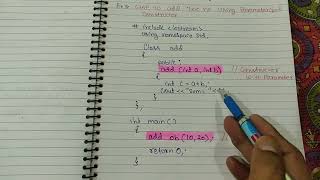 WAP to add two no using Parameterized
Constructor
# include <iostream>
using namespace std;
Class add
{
public:
add (int a, int b) // Constructor
{ with Parameter
int c = a+b;
cout << "Sum=" <<
}
};
int main ()
{
add ob (10, 20);
return 0;
}